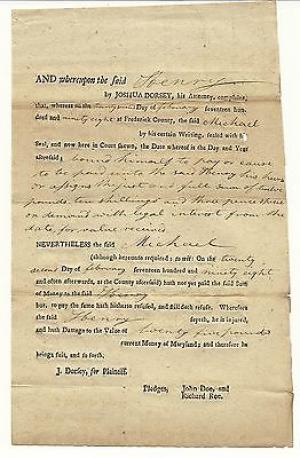 AND whereupon the said Henry
by JOSHUA DORSEY, his Attorney, complains,
that, whereas on the twenty second Day of february seventeen hun-
dred and ninety eight at Frederick County, the said Michael
by his certain Writing, sealed with his
Seal, and now here in Court shewn, the Date whereof is the Day and Year
aforesaid; bound himself to pay or cause
to be paid unto the said Henry his heirs
or assigns the just and full sum of twelve
pounds, ten shillings and three pence
on demand with legal interest from the
date, for value received
NEVERTHELESS the said Michael
(although hereunto required: to wit: On the twenty
second Day of february seventeen hundred and ninety eight
and often afterwards, at the County aforesaid) hath not yet paid the said Sum
of Money to the said Henry
but to pay the same hath hitherto refused, and still doth refuse. Wherefore
the said Henry sayeth, he is injured,
and hath Damage to the Value of twenty five pounds
current Money of Maryland; and therefore he
brings suit, and so forth.
J. Dorsey, for Plaintiff.
Pledges, John Doe, and
Richard Roe.